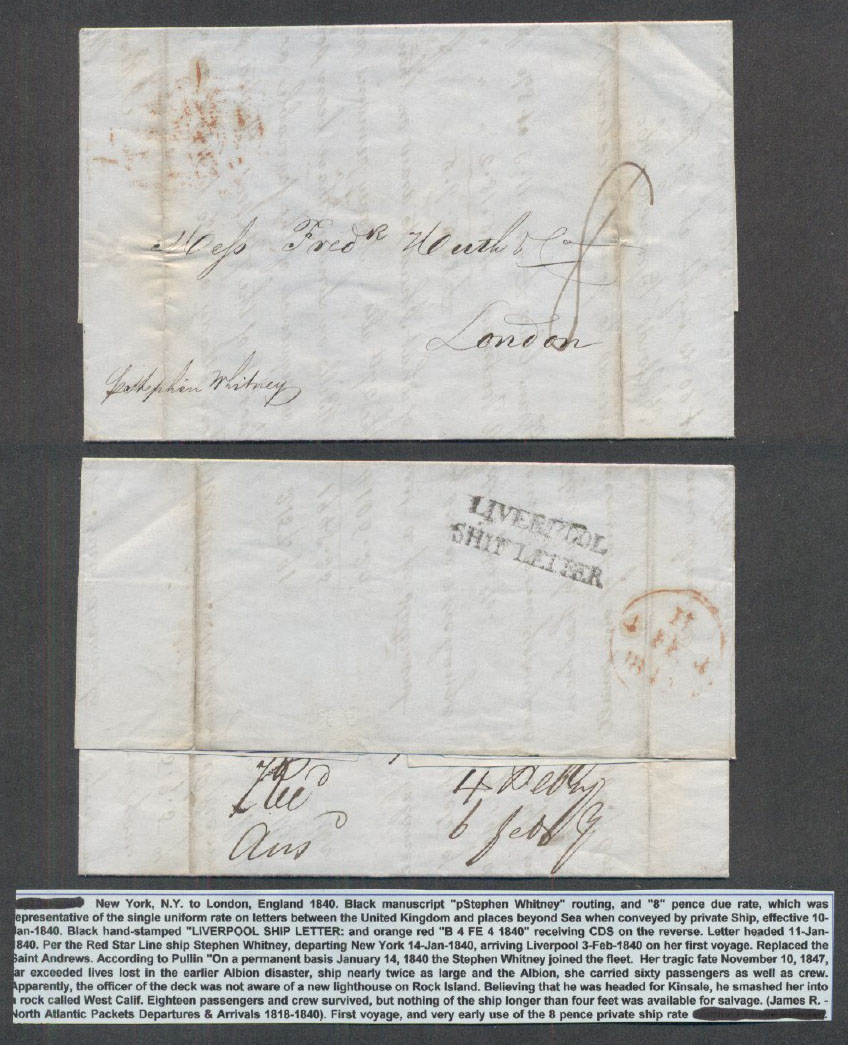 8
Mess Fredk Huth & Co
London
p Stephen Whitney
LIVERPOOL
SHIP LETTER
4 FE 4
Recd 4 Feby
Ansd 6 feby
New York, N.Y. to London, England 1840. Black manuscript "pStephen Whitney" routing, and "8" pence due rate, which was
epresentative of the single uniform rate on letters between the United Kingdom and places beyond Sea when conveyed by private Ship, effective 10-
Jan-1840. Black hand-stamped "LIVERPOOL SHIP LETTER: and orange red "B 4 FE 4 1840" receiving CDS on the reverse. Letter headed 11-Jan-
1840. Per the Red Star Line ship Stephen Whitney, departing New York 14-Jan-1840, arriving Liverpool 3-Feb-1840 on her first voyage. Replaced the
Saint Andrews. According to Pullin "On a permanent basis January 14, 1840 the Stephen Whitney joined the fleet. Her tragic fate November 10, 1847,
far exceeded lives lost in the earlier Albion disaster, ship nearly twice as large and the Albion, she carried sixty passengers as well as crew.
Apparently, the officer of the deck was not aware of a new lighthouse on Rock Island. Believing that he was headed for Kinsale, he smashed her into
a rock called West Calif. Eighteen passengers and crew survived, but nothing of the ship longer than four feet was available for salvage. (James R. -
North Atlantic Packets Departures & Arrivals 1818-1840). First voyage, and very early use of the 8 pence private ship rate